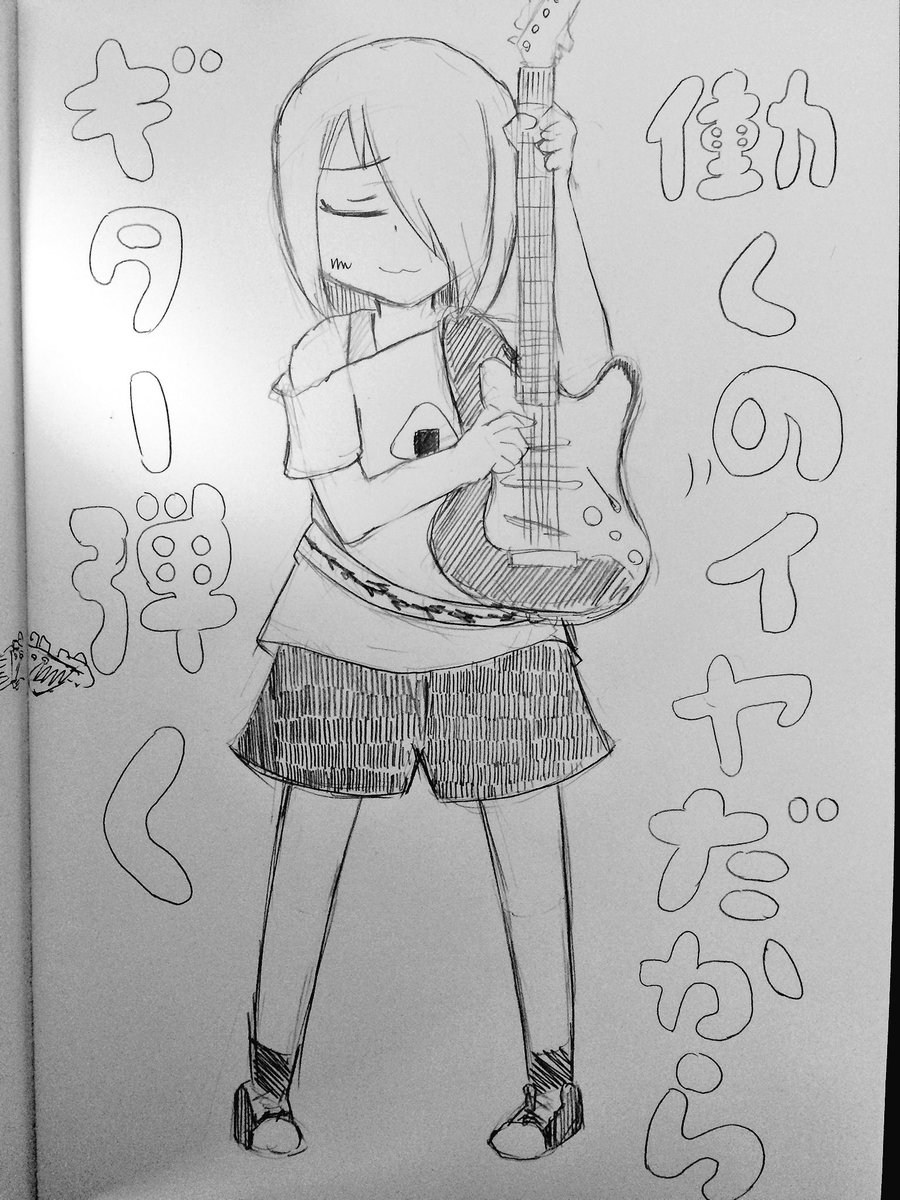 働くのイヤだから
ギター弾く